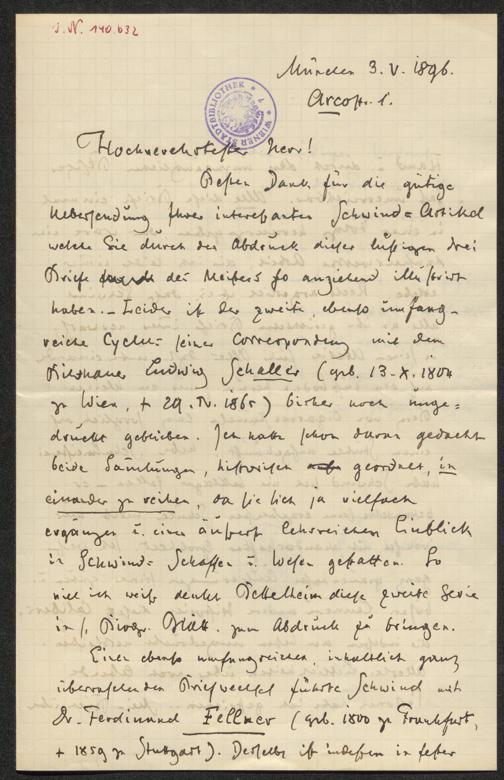 J. N. 140.632
WIENER STADTBIBLIOTHEK
München 3. V. 1896.
Arcostr. 1.
Hochverehrtester Herr!
Besten Dank für die gütige
Uebersendung Ihres interessanten Schwind-Artikel
welche Sie durch den Abdruck dieser lustigen drei
Briefe des Meisters so anziehend illustrirt
haben. – Leider ist der zweite, ebenso umfang-
reiche Cyclus seiner Correspondenz mit dem
Bildhauer Ludwig Schaller (geb. 13. X. 1804
zu Wien, + 29. IV. 1865) bisher noch unge-
druckt geblieben. Ich hatte schon daran gedacht
beide Sammlungen, historisch geordnet, in
einander zu reihen, da sie sich ja vielfach
ergänzen u. einen äußerst lehrreichen Einblick
in Schwinds Schaffen u. Wesen gestatten. So
viel ich weiß denkt Bettelheim diese zweite Serie
in s. Biogr. Blätt. zum Abdruck zu bringen.
Einen ebenso umfangreichen, inhaltlich ganz
überraschenden Briefwechsel führte Schwind mit
Dr. Ferdinand Fellner (geb. 1800 zu Frankfurt,
+ 1859 zu Stuttgart). Derselbe ist indessen in fester